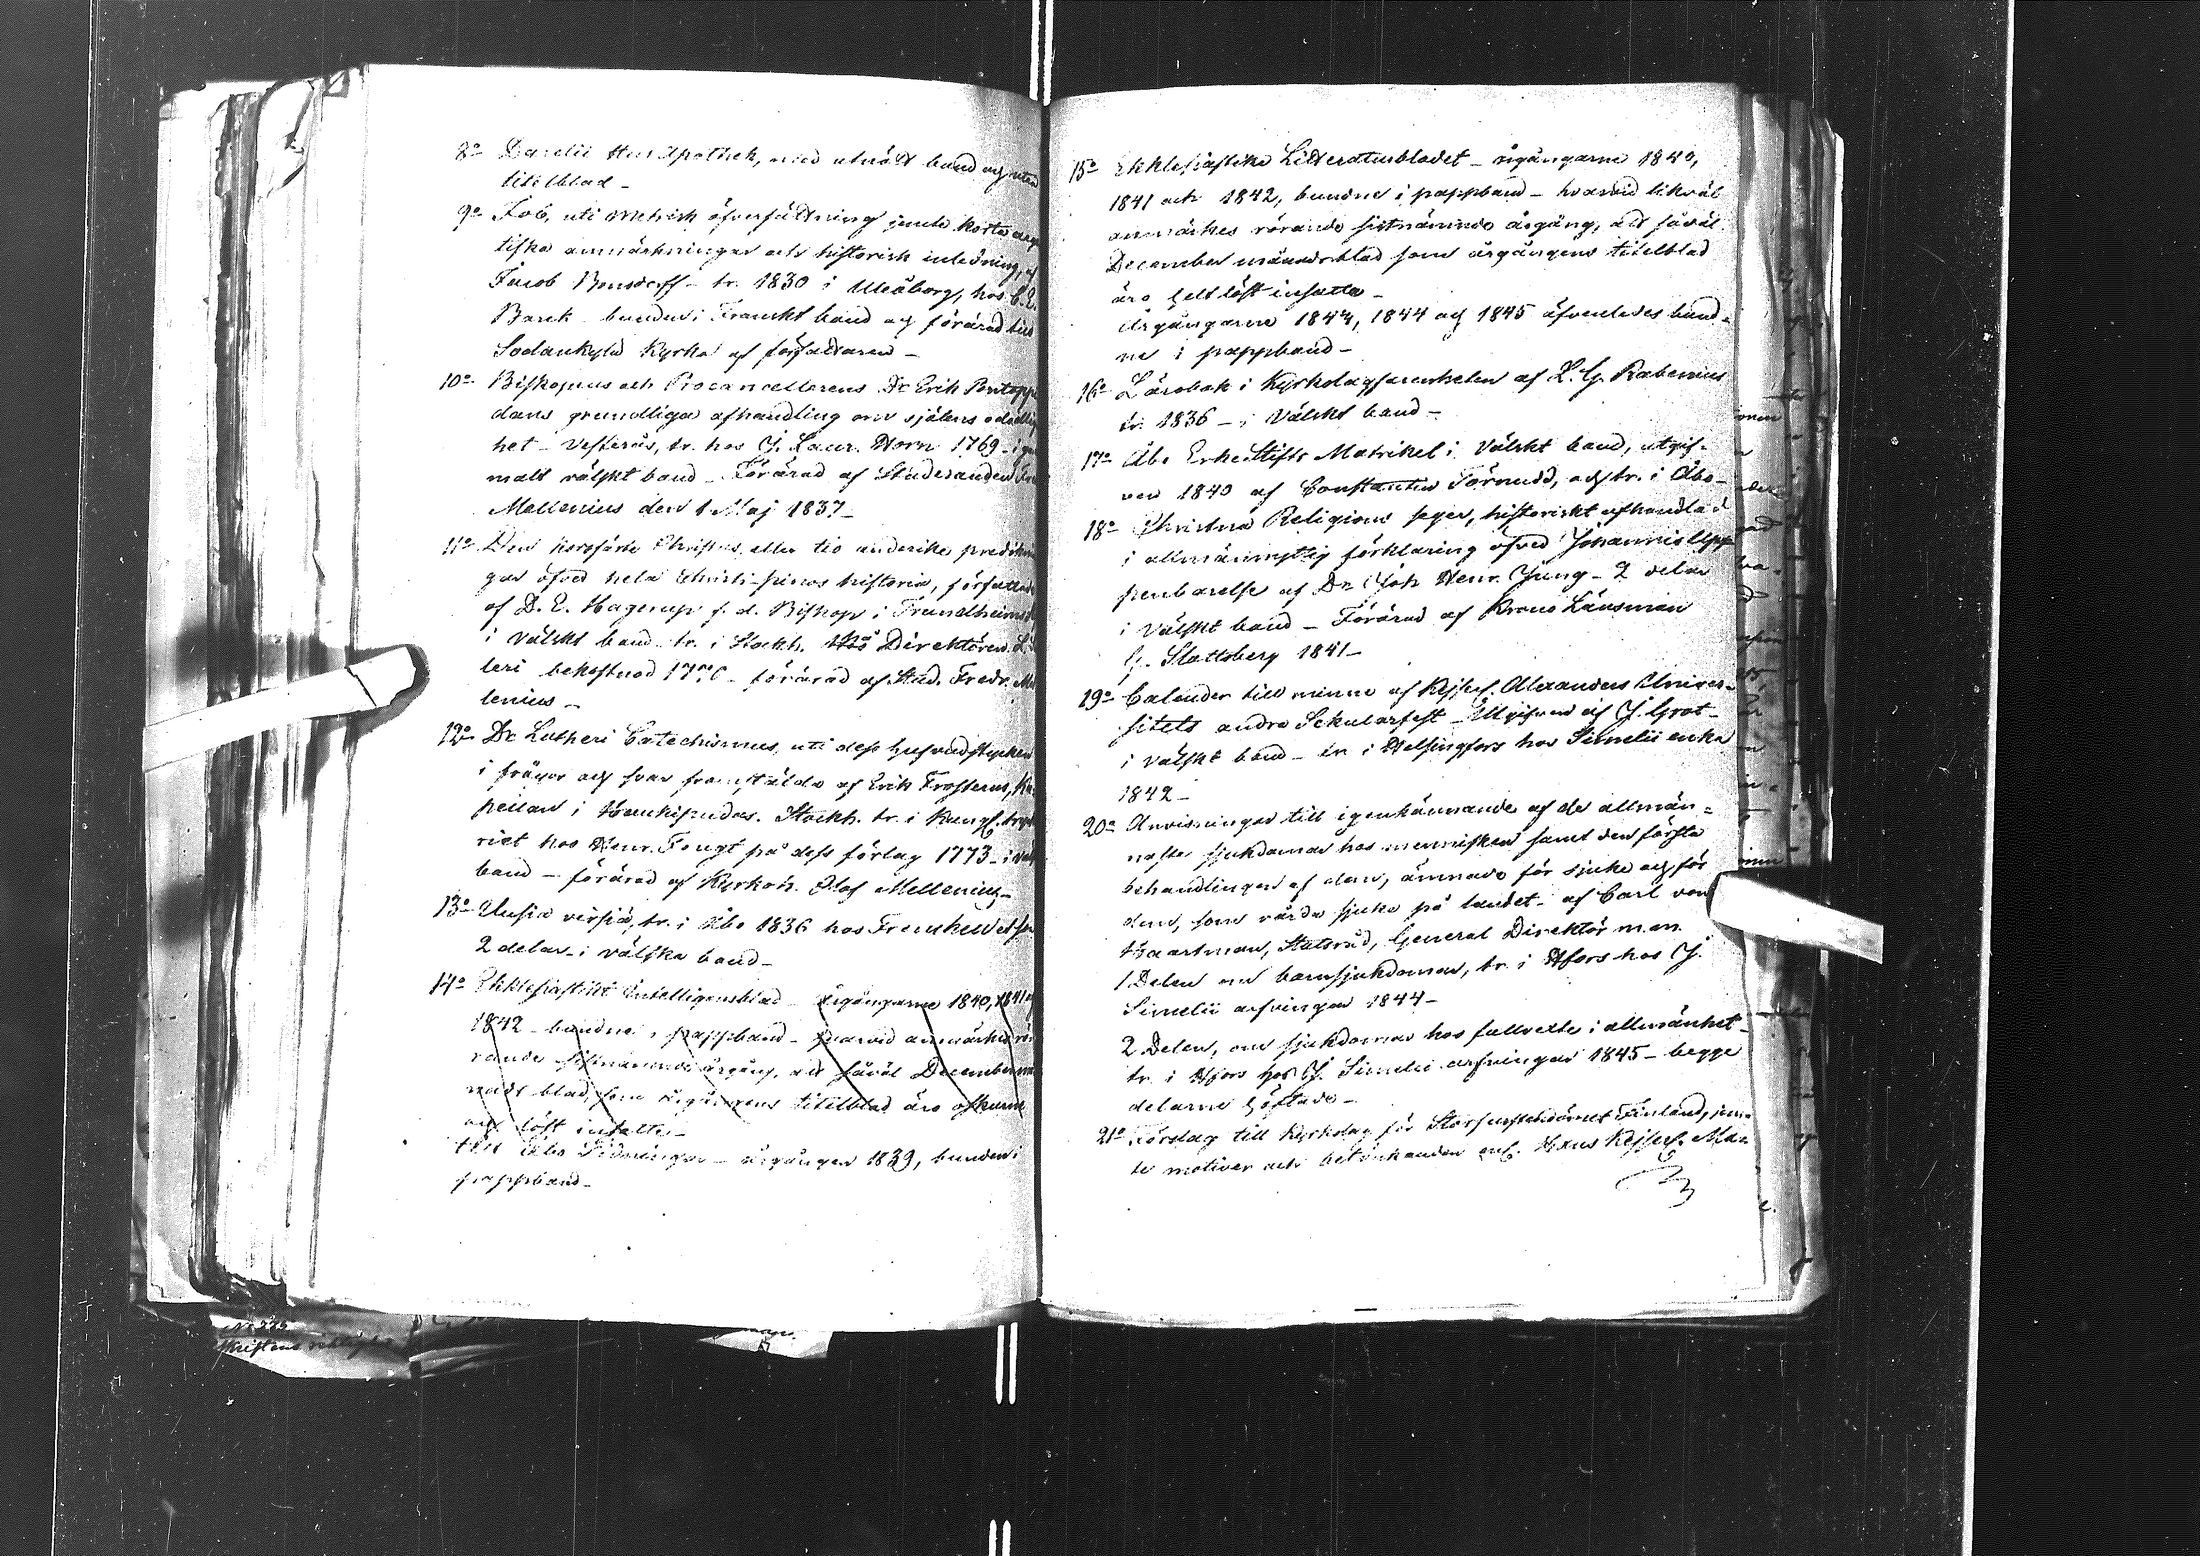 8o Darelii Hus Apothek, med utnött band och utan
titelblad -
9o Job, uti metrisk öfversättning jemte korta
tiska anmärkningar och historisk inledning, af
Jacob Bonsdorff - tr. 1830 i Uleåborg, hos C. E.
Barck - bunden i Franskt band och förärad till
Sodankylä Kyrka af författaren -
10o Biskopens och Procancellerens Dr Erik Pontoppi
dans grundliga afhandling om själens odödlig
het - Vesterås, tr. hos J. Laur. Horn 1769 - i gam
malt välskt band - Förärad af Studeranden
Mellenius den 1 Maj 1837 -
11o Den korsfäste Christus eller tio andeliga predikn
gar öfver hela Christi pinos historia, författade
af D. E. Hagerup f. d. Biskop i Trundheims
i välskt band tr. i Stockh. hos Direktören
leri bekostnad - förärad af Stud. Fredr. Mel
lenius -
12o Dr Lutheri Catechismus, uti dess hufvudstycken
i frågor och svar framstälde af Erik Frosterus, Ka
pellan i Haukipudas. Stockh. tr. i Kungl. tryck
riet hos Henr. Fougt på dess förlag 1773 - i väl
band - förärad af Kyrkoh. Olof Mellenius -
13o Uusia virsiä, tr. i Åbo 1836 hos Frenckell et son
2 delar i välska band -
14o Ekklesiastikt Intelligensblad - årgångarne 1840, 1841 o
1842 - bundne i pappband - hvarvid anmärkes rö
rande sistnämnde årgång, att såväl December må
nads blad, som årgångens titelblad äro
och löst insatte -
till Åbo Tidningar - årgången 1839, bunden i
pappband -
15o Ekklesiastika Litteraturbladet - årgångarne 1840,
1841 och 1842, bundne i pappband - hvarvid likväl
anmärkes rörande sistnämnde årgång, att såväl
December månads blad som årgångens titelblad
äro helt löst insatta -
Årgångarne 1843, 1844 och 1845 äfvenledes bund-
ne i pappband -
16o Lärobok i Kyrkolagfarenheten af L. G. Rabenius
tr. 1836 - i Välskt band -
17o Åbo Erke Stifts Matrikel i Välskt band, utgif-
ven 1840 af Constantin Törnudd, och tr. i Åbo -
18o Christna Religions seger, historiskt afhandlad
i allmännyttig förklaring öfver Johannis Upp
penbarelse af Dr Joh Henr. Jung - 2 delar
i Välskt band - Förärad af Krono Länsman
G. Slattsberg 1841 -
19o Calender till minne af Kejserl. Alexanders Univer-
sitets andra Sekularfest - Utgifven af J. Grot -
i välskt band - tr. i Helsingfors hos Simelii enka
1842 -
20o Anvisningar till igenkännande af de allmän-
naste sjukdomar hos menniskan samt den första
behandlingen af dem, ämnade för sjuke och för
dem, som vårda sjuka på landet - af Carl von
Haartman, Statsråd, General Direktör m.m.
1 Delen om barnsjukdomar, tr. i Hfors hos J.
Simelii arfvingar 1844 -
2 Delen, om sjukdomar hos fullvexte i allmänhet -
tr. i Hfors hos J. Simelii arfvingar 1845 - begge
delarne häftade -
21o Förslag till Kyrkolag för Storfurstendömet Finland, jem-
te motiver och betänkanden enl. Hans Kejserl. Ma-